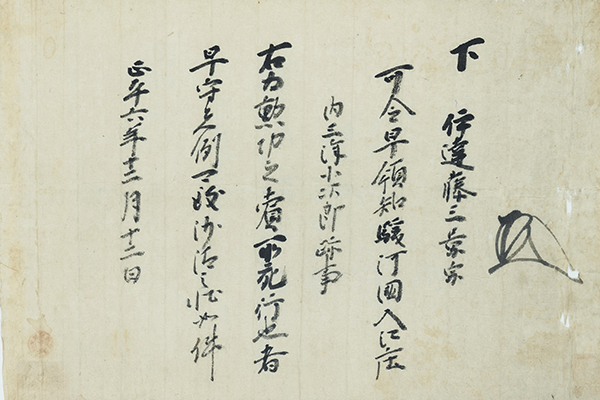 下 伊達藤三景宗
可令早領知駿河國入江庄
内三澤小次郎跡事
右為勲功之賞所宛行也者
早守先例可致沙汰之状如件
正平六年十二月十二日